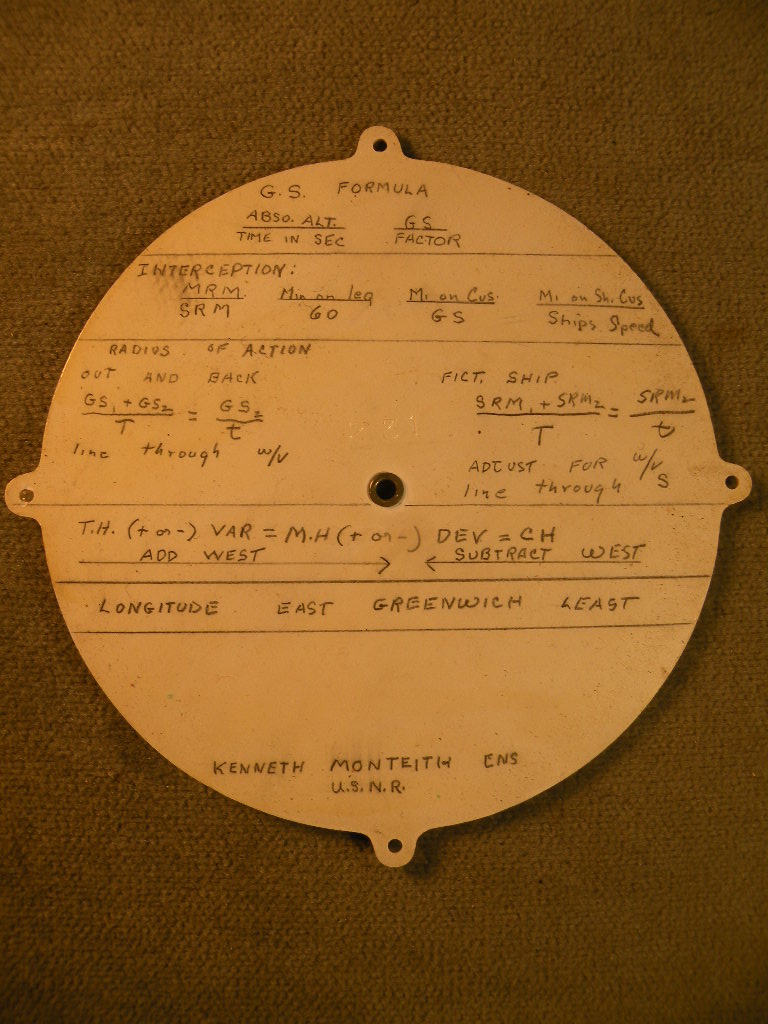 G.S. FORMULA
ABSO. ALT. GS
TIME IN SEC FACTOR
INTERCEPTION:
MRM Min on leg Mi on Cus. Mi on Sh. Cus
SRM 60 GS Ships Speed
RADIUS OF ACTION
OUT AND BACK
GS₁ + GS₂ = GS₂
T t
line through w/v
FICT. SHIP
SRM₁ + SRM₂ = SRM₂
T t
ADJUST FOR w/v
line through S
T.H. (+ or -) VAR = M.H (+ or -) DEV = CH
ADD WEST SUBTRACT WEST
LONGITUDE EAST GREENWICH LEAST
KENNETH MONTEITH ENS
U.S.N.R.